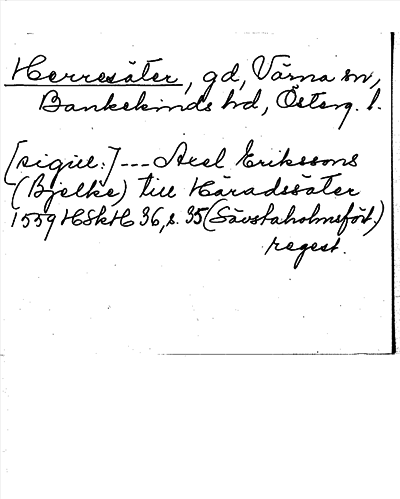 Herresäter, gd, Värna sn,
Bankekinds hd, Österg. l.
[sigill:] --- Axel Erikssons
(Bjelke) till Häradssäter
1559 HSkH 36, s. 35 (Sävstaholmsfört.)
regest.